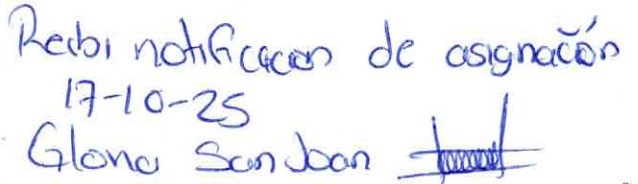 Recibi notificacion de asignación
17-10-25
Gloria San Juan